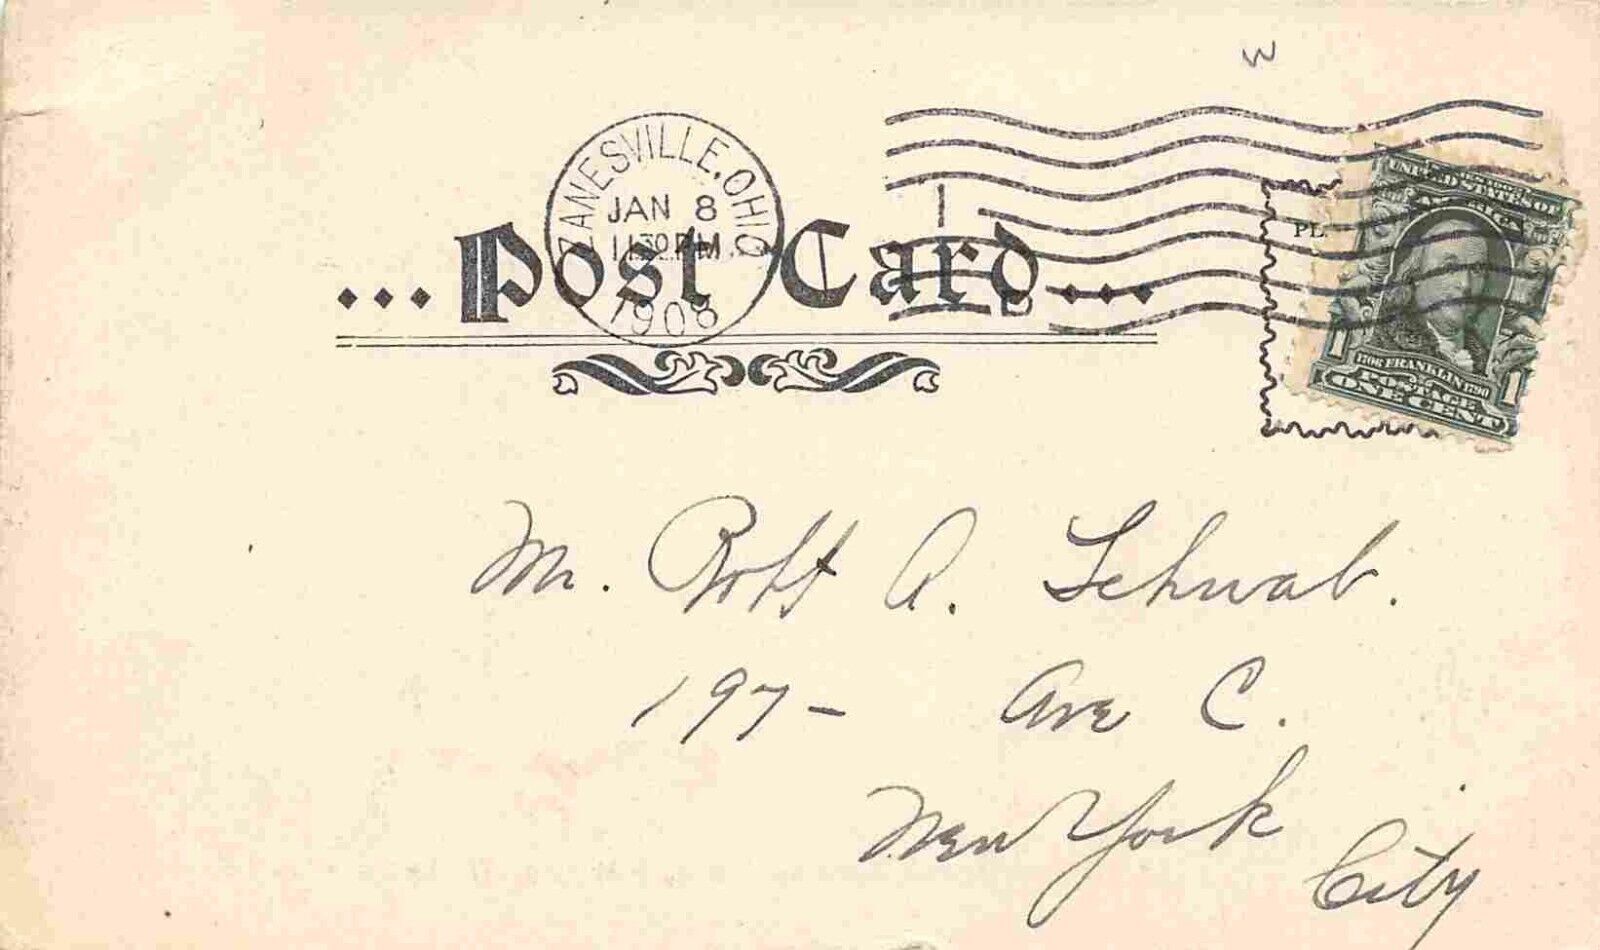 W
ZANESVILLE, OHIO
JAN 8
11 30 PM
1908
1
...Post Card...
PL
UNITED STATES OF
AMERICA
1706 FRANKLIN 1790
1 1
POSTAGE
ONE CENT
Mr. Robt A. Schwab.
197- Ave C.
New York
City